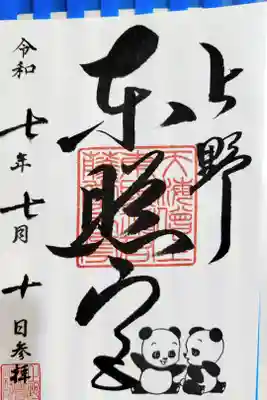 上野
東照宮
令和七年七月十日参拝